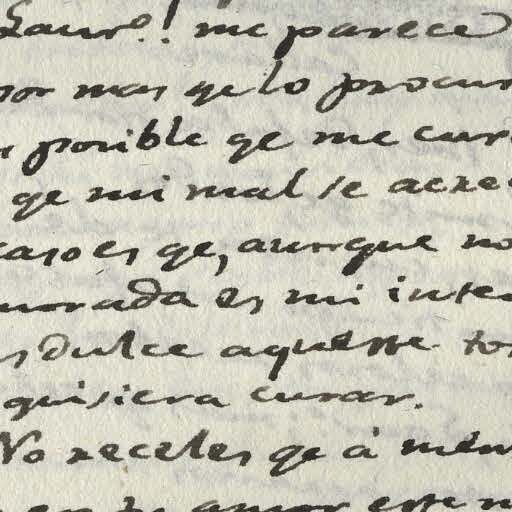 Laur.º! me parece
por mas qe lo procur
posible qe me cur
qe mi mal se acre
caso es qe, aunque no
morada es mi inten
es dulce aqueste tor
quisiera curar.
No receles qe á men
en tu amor este m